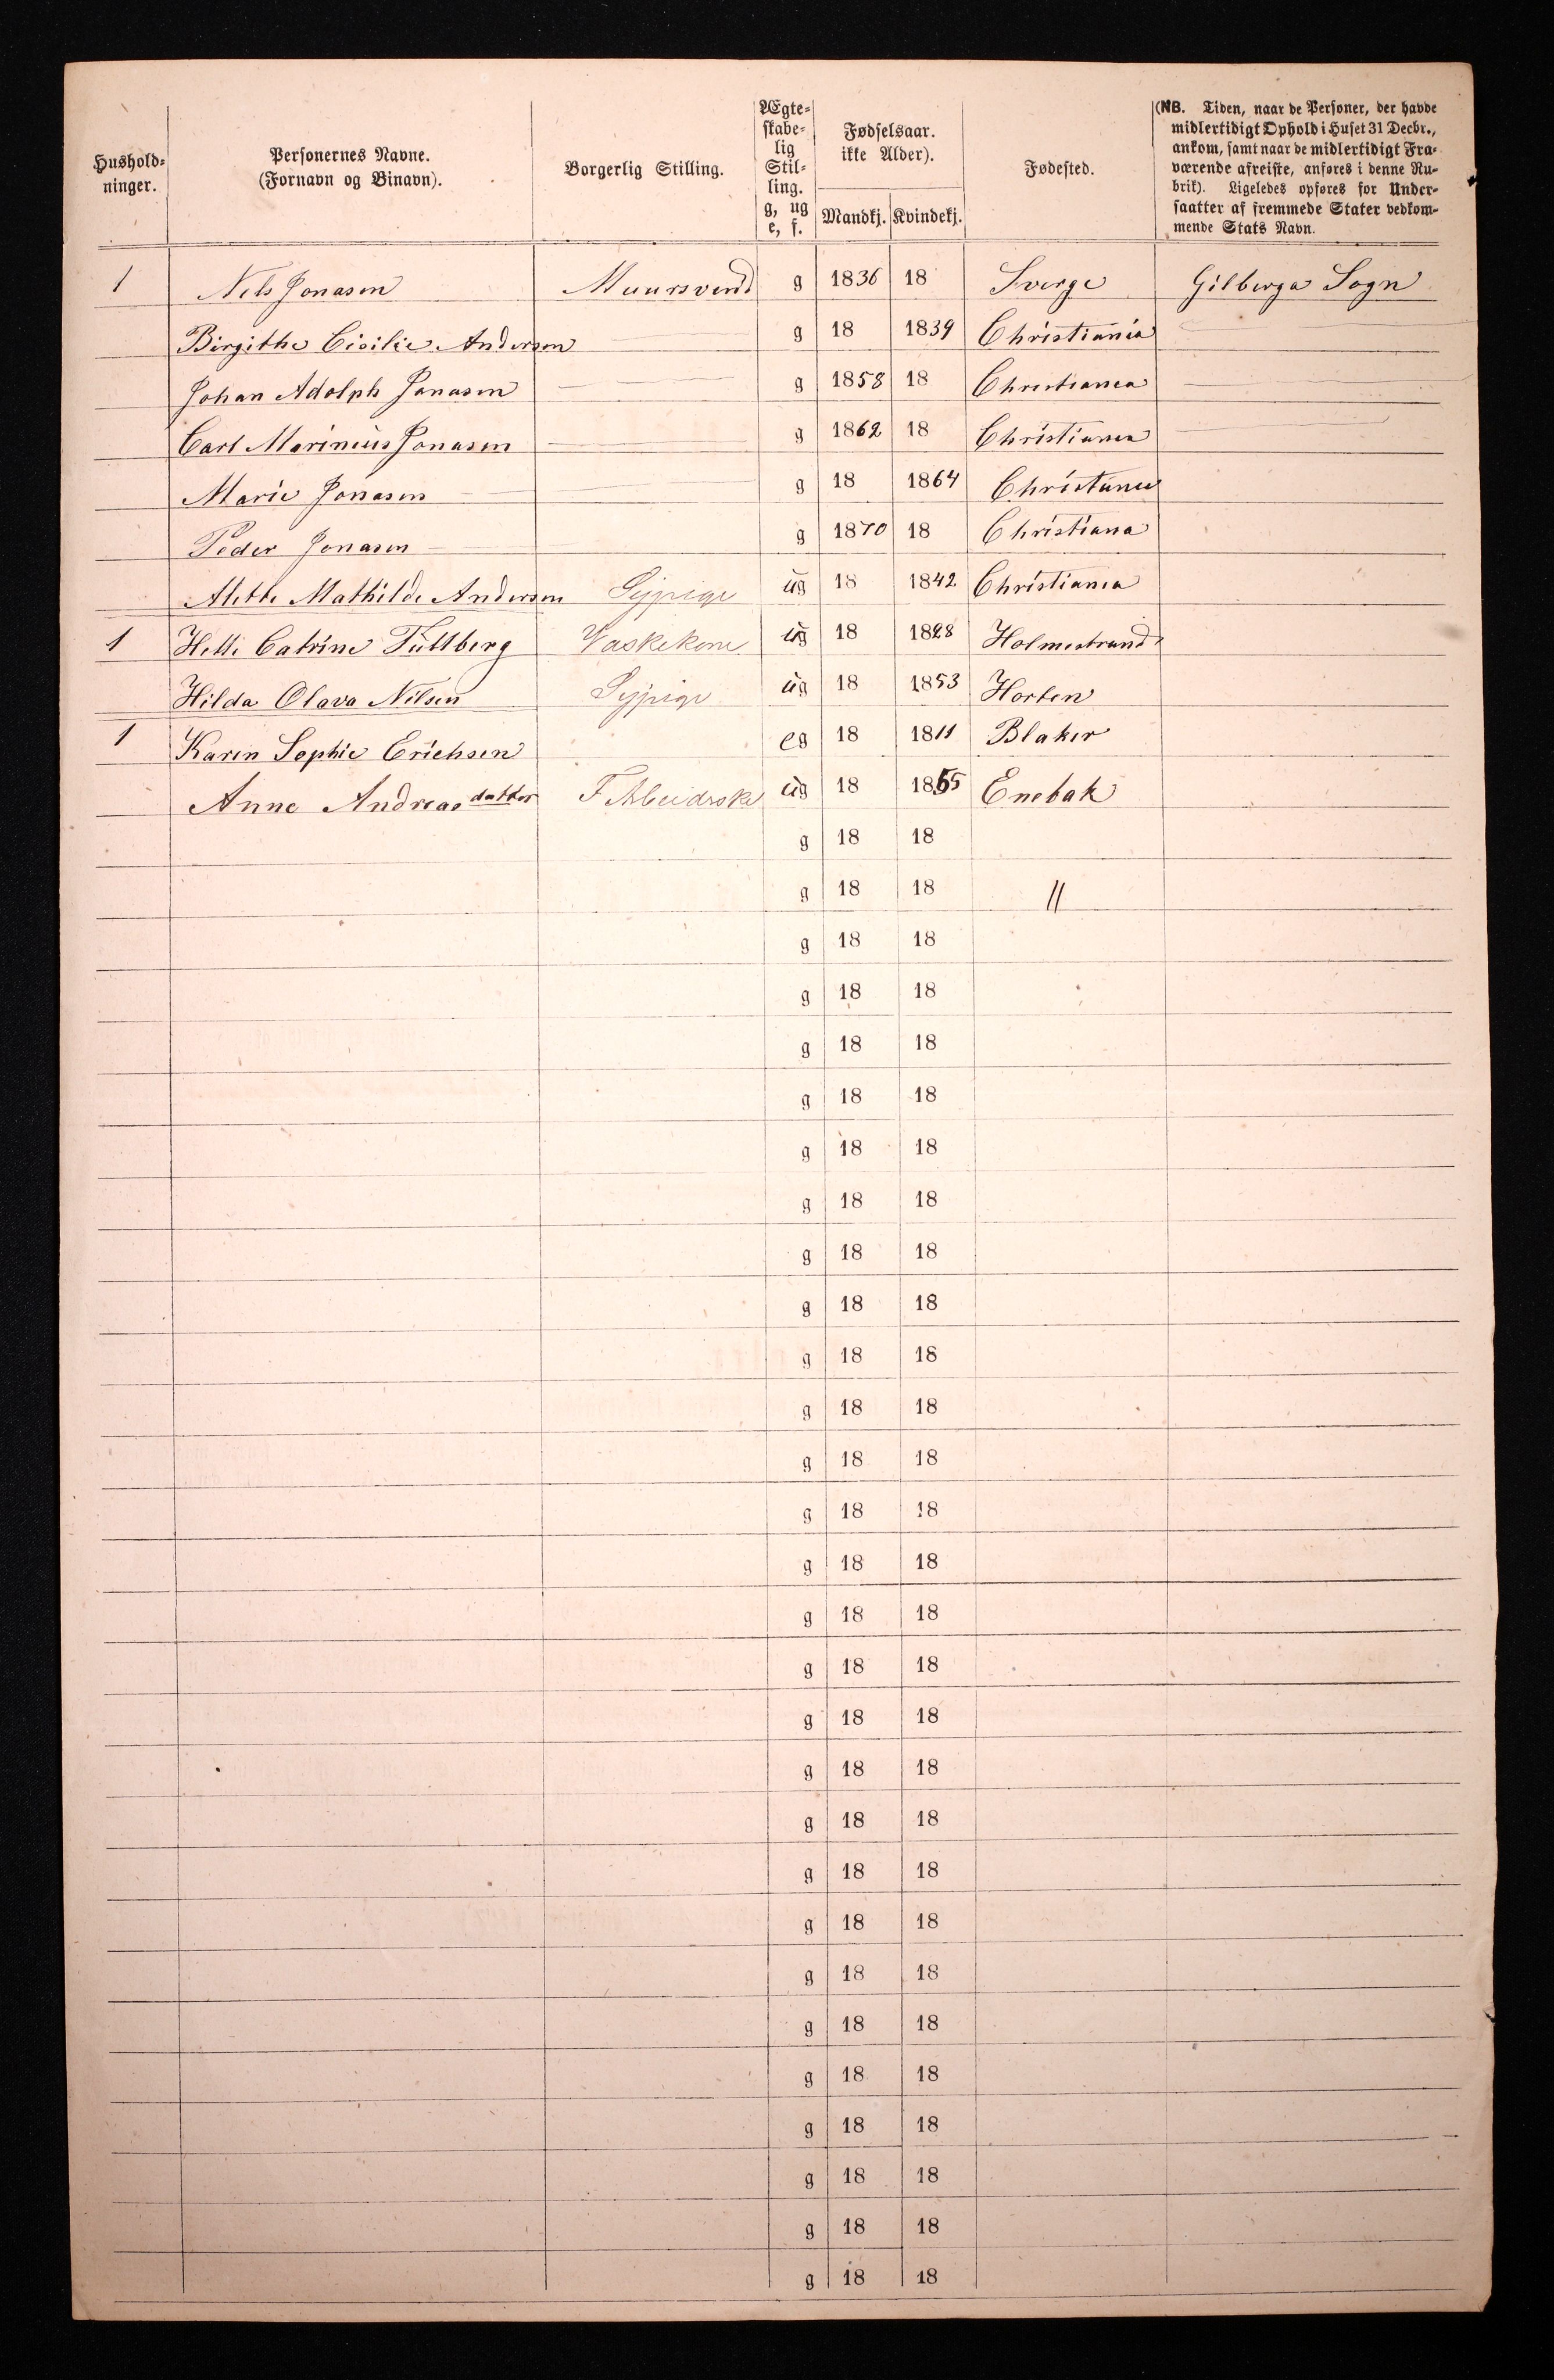 Hushold-
ninger.
Personernes Navne.
(Fornavn og Binavn).
Borgerlig Stilling.
Ægte-
skabe-
lig
Stil-
ling.
g, ug
e, f.
Fødselsaar.
ikke Alder).
Mandkj. Kvindekj.
Fødested.
(NB. Tiden, naar de Personer, der havde
midlertidigt Ophold i Huset 31 Decbr.,
ankom, samt naar de midlertidigt Fra-
værende afreiste, anføres i denne Ru-
brik). Ligeledes opføres for Under-
saatter af fremmede Stater vedkom-
mende Stats Navn.
1 Nils Jonasen Muursvend g 1836 18 Sverge Gilberga Sogn
Birgithe Cicilie Andersen g 18 1839 Christiania
Johan Adolph Jonasen g 1858 18 Christiania
Carl Marinius Jonasen g 1862 18 Christiania
Marie Jonasen g 18 1864 Christiania
Peder Jonasen g 1870 18 Christiana
Alette Mathilde Andersen Sypige ug 18 1842 Christiania
1 Helle Catrine Tullberg Vaskekone ug 18 1828 Holmestrand
Hilda Olava Nilsen Sypige ug 18 1853 Horten
1 Karen Sophie Erichsen eg 18 1811 Blaker
Anne Andreasdatter F Arbeidrske ug 18 1855 Enebak
g 18 18
g 18 18 〃
g 18 18
g 18 18
g 18 18
g 18 18
g 18 18
g 18 18
g 18 18
g 18 18
g 18 18
g 18 18
g 18 18
g 18 18
g 18 18
g 18 18
g 18 18
g 18 18
g 18 18
g 18 18
g 18 18
g 18 18
g 18 18
g 18 18
g 18 18
g 18 18
g 18 18
g 18 18
g 18 18